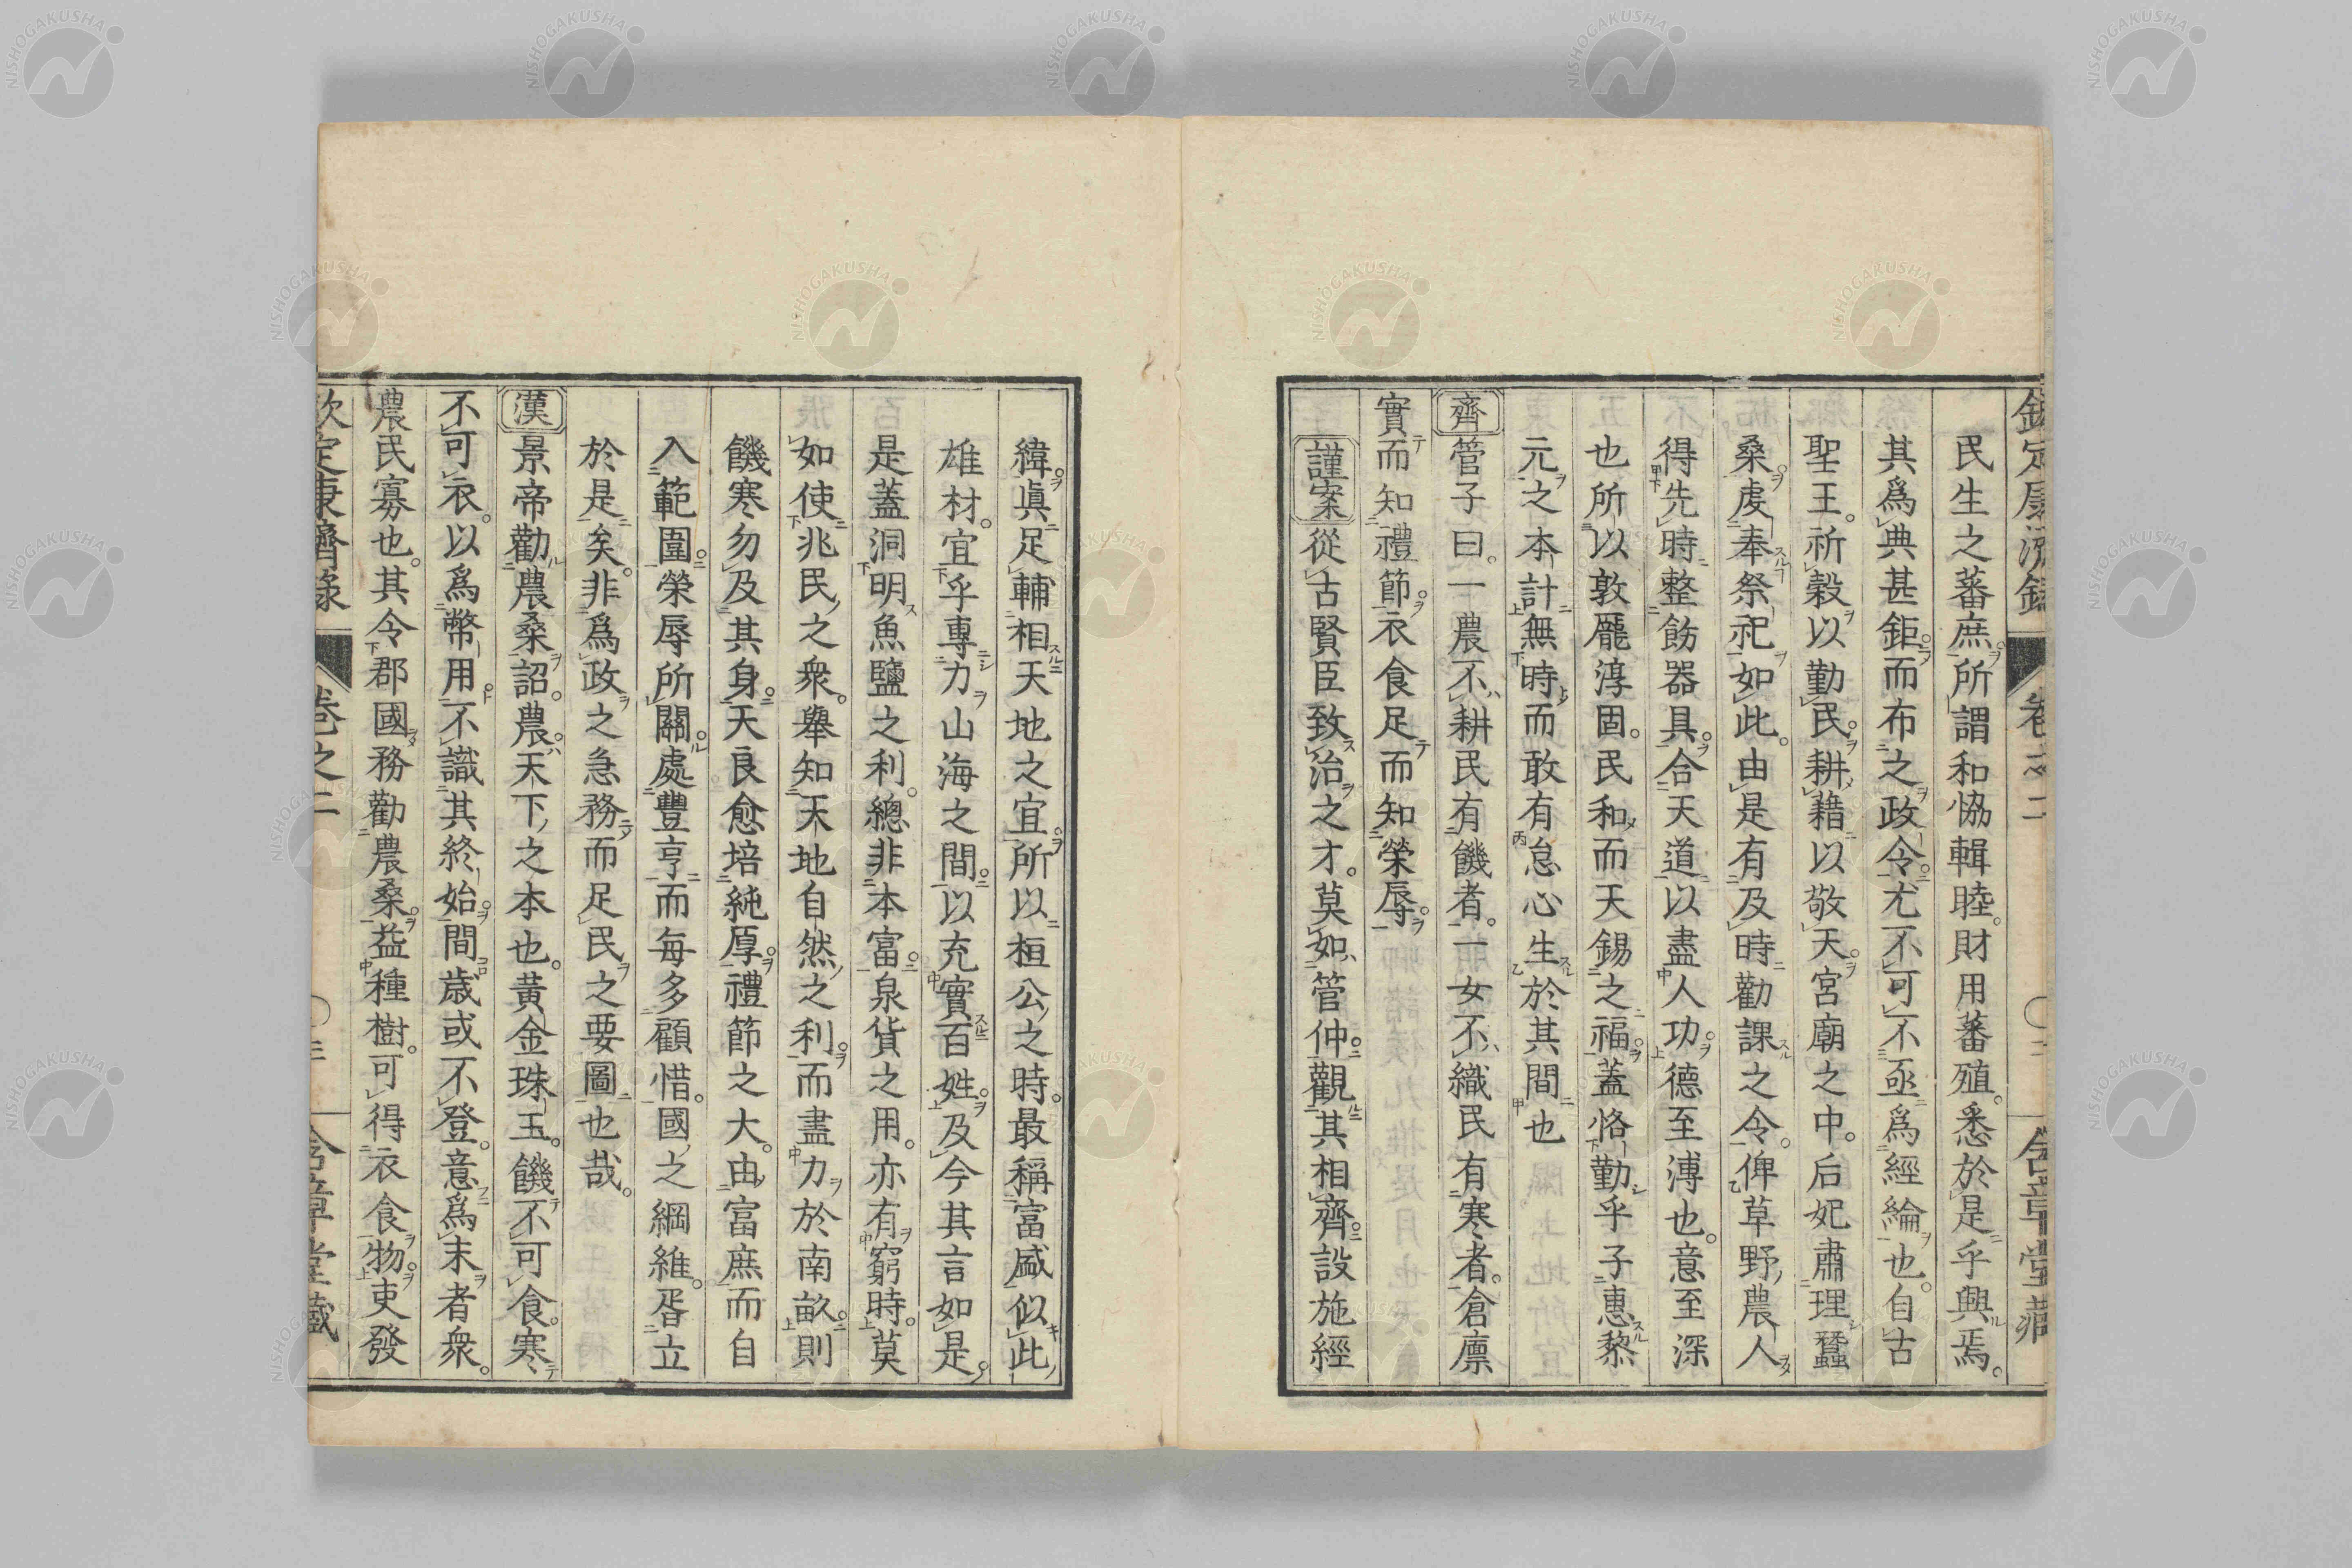 民生之蕃庶所謂和協輯睦。財用蕃殖。悉於是乎興焉。
其爲典甚鉅而布之政令。尤不可不亟爲經綸也。自古
聖王。祈穀以勤民。耕藉以敬天。宮廟之中。后妃肅理蠶
桑。虔奉祭祀如此。由是有及時勸課之令。俾草野農人
得先時整飭器具。合天道以盡人功。德至溥也。意至深
也所以敦厖淳固。民和而天錫之福。蓋恪勤乎子惠黎
元之本計無時而敢有怠心生於其間也
齊管子曰。一農不耕民有饑者。一女不織民有寒者。倉廩
實而知禮節。衣食足而知榮辱。
謹案從古賢臣致治之才。莫如管仲。觀其相齊。設施經
緯。眞足輔相天地之宜。所以桓公之時。最稱富盛似此
雄材。宜乎專力山海之間。以充實百姓。及今其言如是。
是蓋洞明魚鹽之利。總非本富。泉貨之用。亦有窮時。莫
如使兆民之衆。舉知天地自然之利。而盡力於南畝。則
饑寒勿及其身。天良愈培純厚。禮節之大。由富庶而自
入範圍。榮辱所關。處豐亨而每多顧惜。國之綱維。胥立
於是矣。非爲政之急務而足民之要圖也哉。
漢景帝勸農桑詔。農天下之本也。黃金珠玉。饑不可食。寒
不可衣。以爲幣用。不識其終始。間歲或不登。意爲末者衆。
農民寡也。其令郡國務勸農桑。益種樹。可得衣食物。吏發
欽定康濟錄 卷之二 含章堂藏